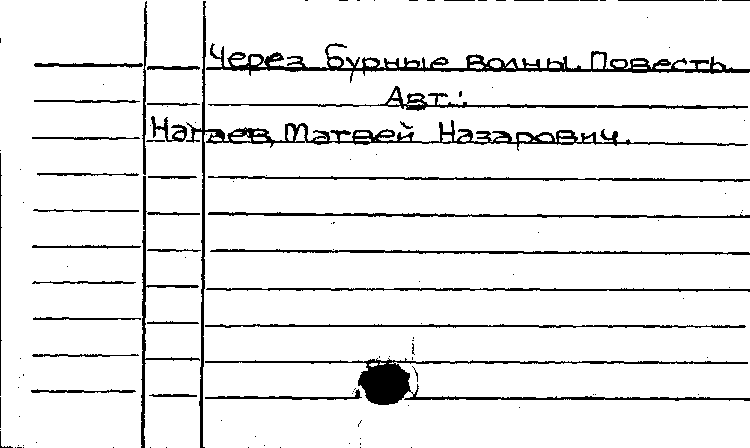 Через бурные волны. Повесть.
Авт.:
Нагаев, Матвей Назарович.